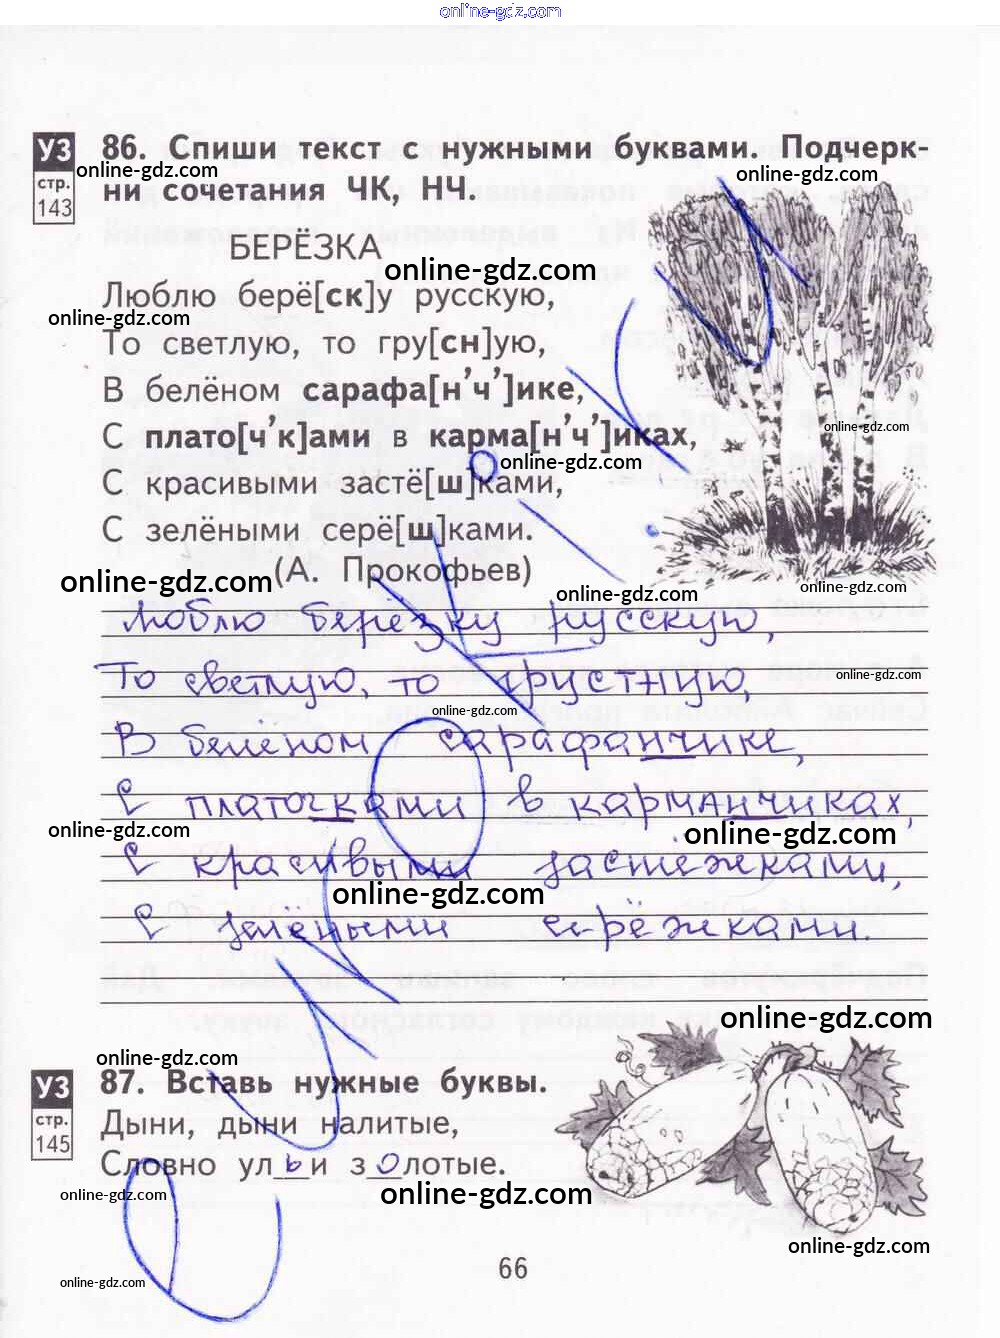 online-gdz.com
УЗ
стр.
143
86. Спиши текст с нужными буквами. Подчерк-
ни сочетания ЧК, НЧ.
online-gdz.com
online-gdz.com
БЕРЁЗКА
online-gdz.com
Люблю берё[ск]у русскую,
online-gdz.com
То светлую, то гру[сн]ую,
В белёном сарафа[н’ч’]ике,
online-gdz.com
С плато[ч’к]ами в карма[н’ч’]иках,
online-gdz.com
С красивыми застё[ш]ками,
С зелёными серё[ш]ками.
(А. Прокофьев)
online-gdz.com
online-gdz.com
online-gdz.com
Люблю берёзку русскую,
То светлую, то грустную,
online-gdz.com
online-gdz.com
В белёном сарафанчике,
С платочками в карманчиках,
online-gdz.com
online-gdz.com
С красивыми застежками,
online-gdz.com
С зелёными серёжками.
online-gdz.com
online-gdz.com
УЗ
стр.
145
87. Вставь нужные буквы.
Дыни, дыни налитые,
Словно ульи золотые.
online-gdz.com
online-gdz.com
online-gdz.com
66
online-gdz.com